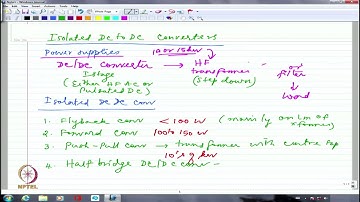 Isolated DC to DC Converters
Power supplies 10 or 15 kW
DC/DC Converter → HF or filter
1 stage transformer
(Either HF AC or (Step down) → Load
Pulsated DC)
Isolated DC DC Conv
1. Flyback Conv < 100 W (mainly on Lm of Xfrmer)
2. Forward Conv 100 to 150 W
3. Push-Pull Conv → transformer with centre tap
10's of kW
4. Half bridge DC/DC Conv -
NPTEL